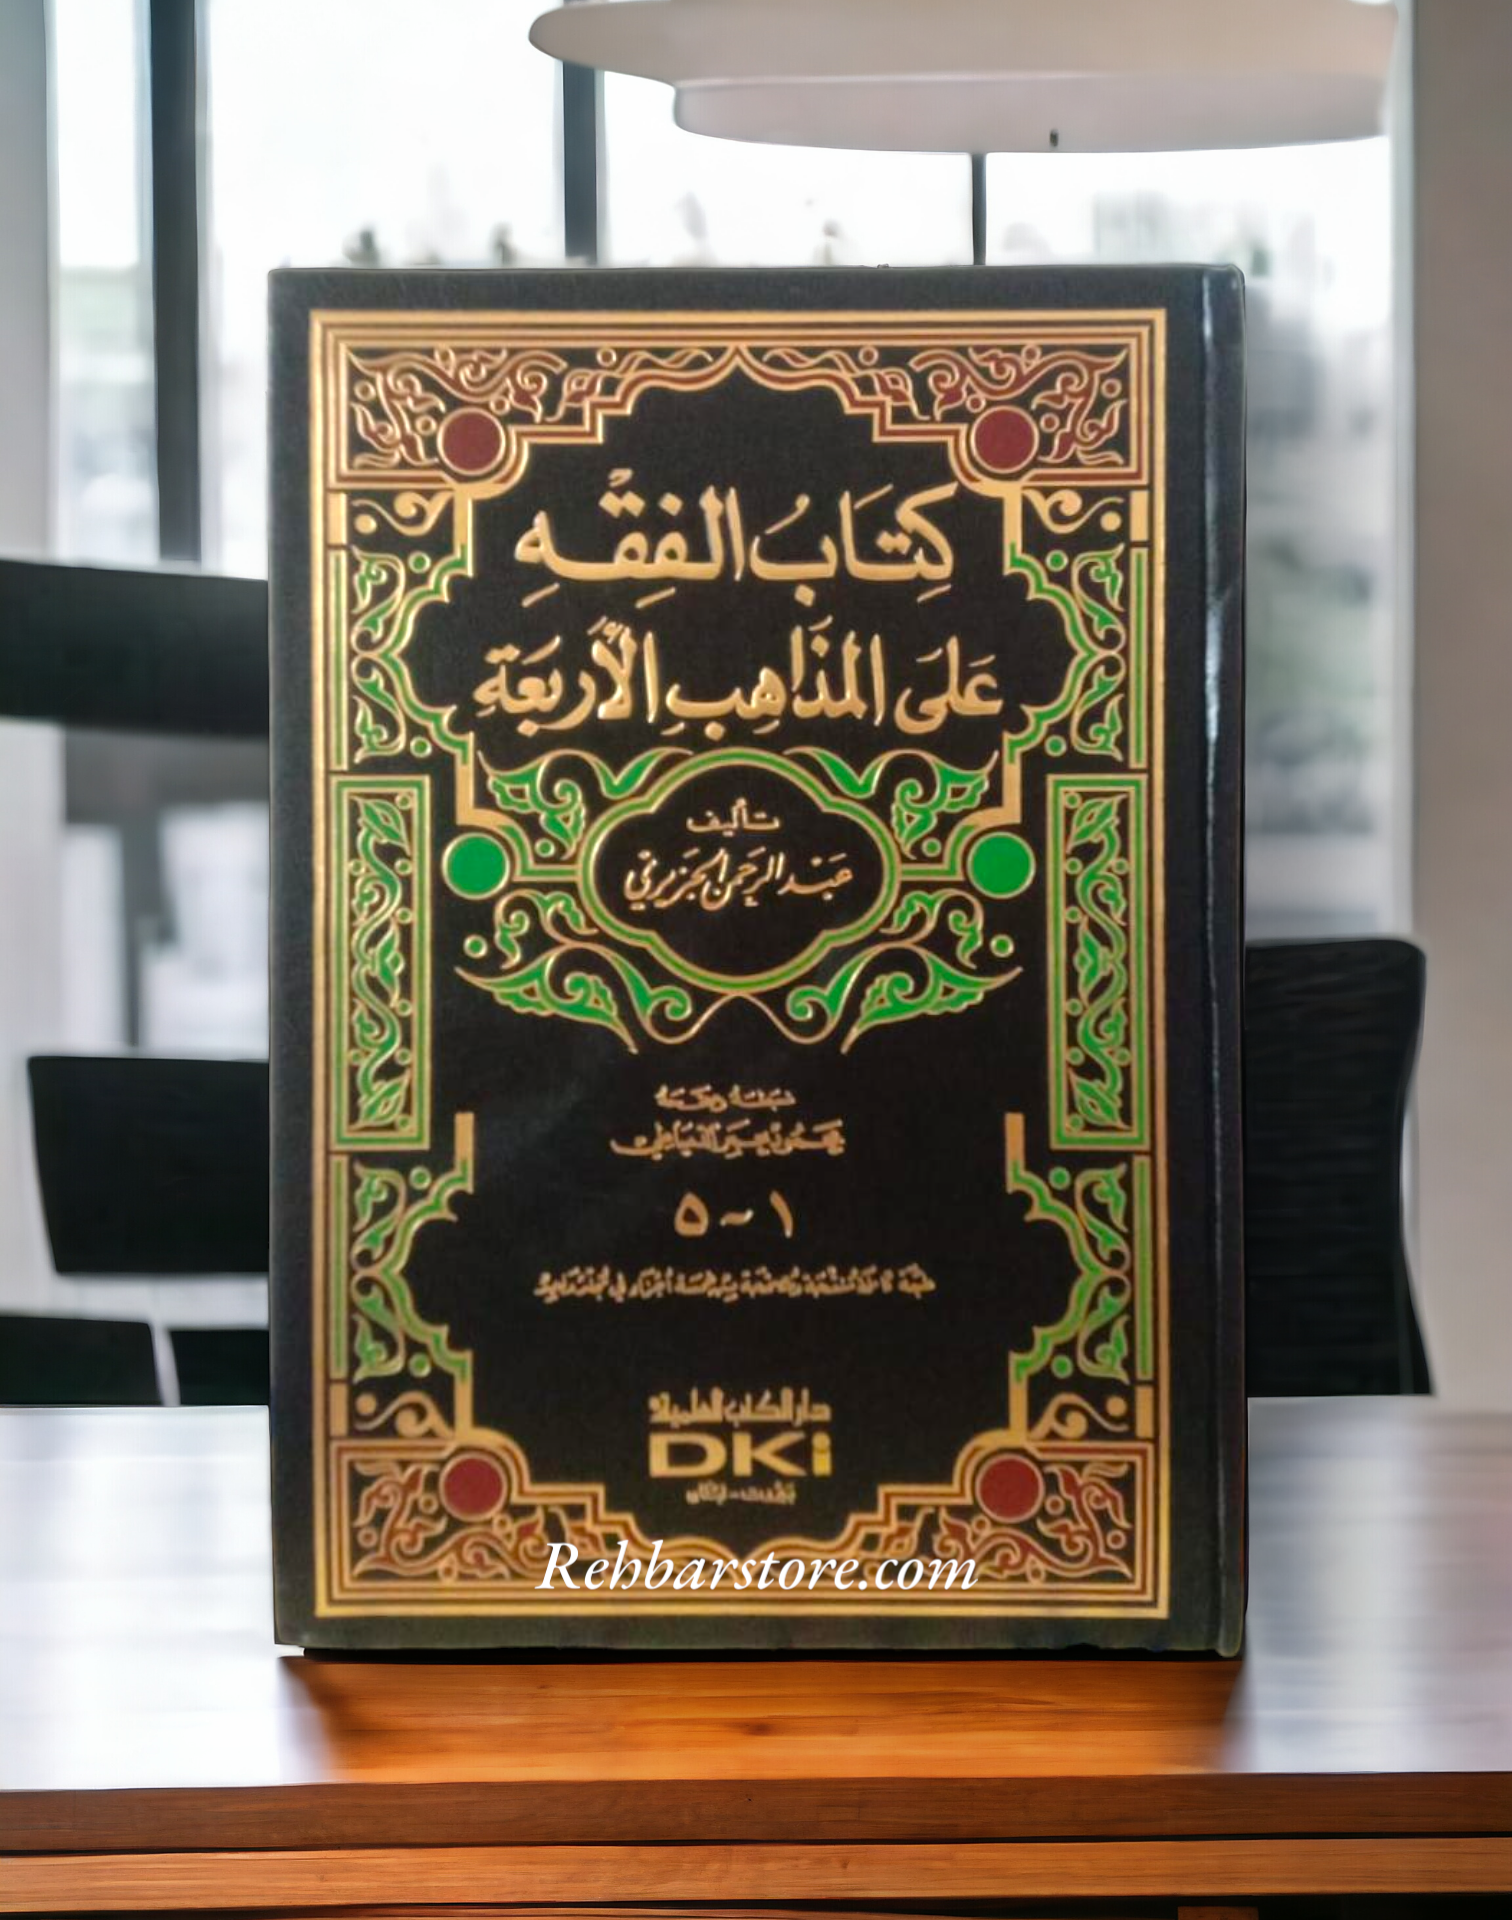 كِتَابُ الفِقْهِ
عَلَى المَذَاهِبِ الأَرْبَعَةِ
تأليف
عَبْد الرَّحمن الجَزيري
١ - ٥
دار الكتب العلمية
DKi
بيروت - لبنان
Rehbarstore.com